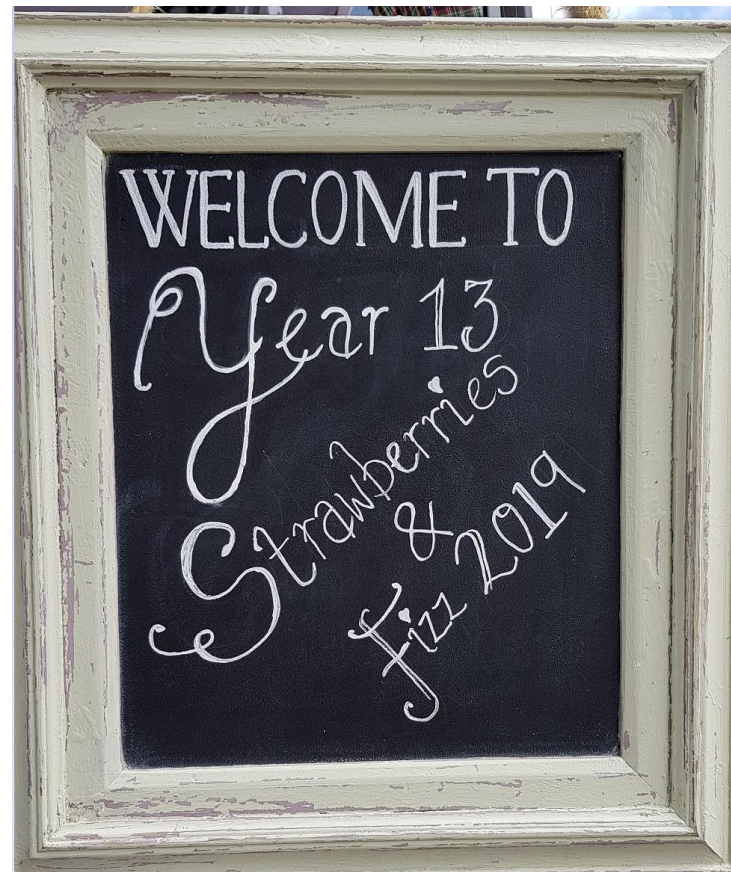 WELCOME TO
Year 13
Strawberries
&
Fizz 2019